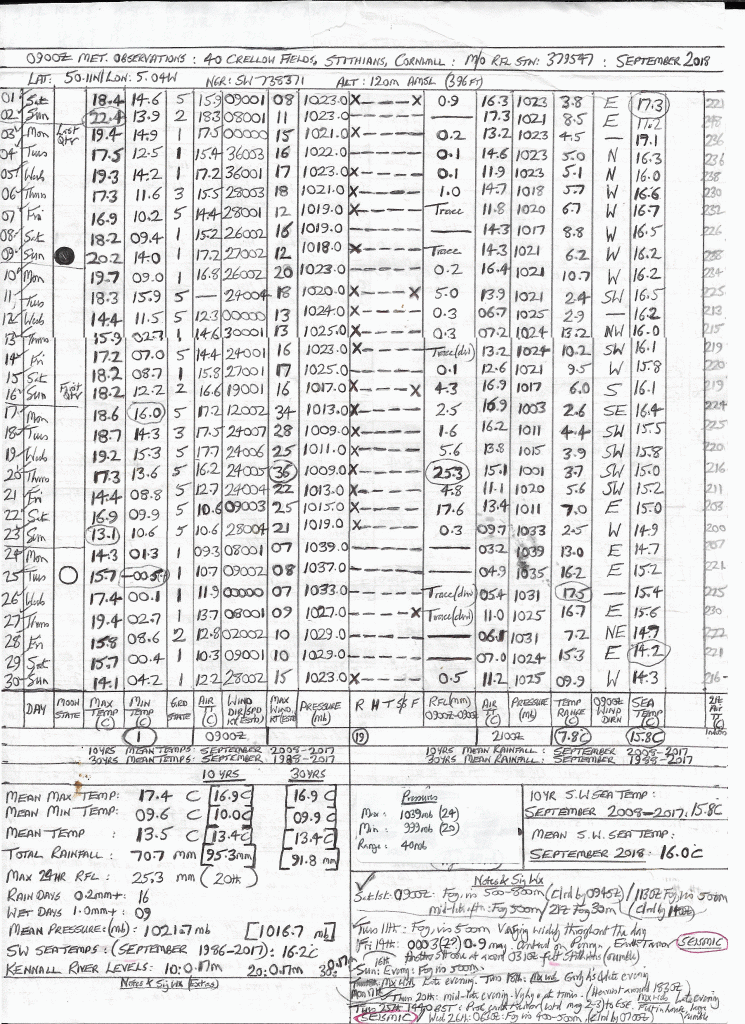 0900Z MET. OBSERVATIONS : 40 CRELLOW FIELDS, STITHIANS, CORNWALL : M/O RFL STN: 379547 : SEPTEMBER 2018
LAT: 50.11N/LON: 5.04W NGR: SW 738371 ALT: 120m AMSL (396FT)
01 Sat 18.4 14.6 5 15.9 09001 08 1023.0 X----X 0.9 16.3 1023 3.8 E 17.3
02 Sun 22.4 13.9 2 18.3 08001 11 1023.0 — 17.3 1021 8.5 E 17.2
03 Mon Last Qtr 19.4 14.9 1 17.5 00000 15 1021.0 X---- 0.2 13.2 1023 4.5 — 17.1 236
04 Tues 17.5 12.5 1 15.4 36003 16 1022.0 ---- 0.1 14.6 1023 5.0 N 16.3 236
05 Wed 19.3 14.2 1 17.2 36001 17 1023.0 X---- 0.1 11.9 1023 5.1 N 16.0 238
06 Thurs 17.3 11.6 3 15.5 28003 18 1021.0 X---- 1.0 14.7 1018 5.7 W 16.6 230
07 Fri 16.9 10.2 5 14.4 28001 12 1019.0 X---- Trace 11.8 1020 6.7 W 16.7 232
08 Sat 18.2 09.4 1 15.2 26002 16 1019.0 ---- — 14.3 1017 8.8 W 16.5 226
09 Sun 20.2 14.0 1 17.2 27002 12 1018.0 X---- Trace 14.3 1021 6.2 W 16.2
10 Mon 19.7 09.0 1 16.8 26002 20 1023.0 ---- 0.2 16.4 1021 10.7 W 16.2 234
11 Tues 18.3 15.9 5 — 24004 18 1020.0 X----X 5.0 13.9 1021 2.4 SW 16.5 225
12 Wed 14.4 11.5 5 12.3 00000 13 1024.0 X---- 0.3 06.7 1025 2.9 — 16.2 213
13 Thurs 15.9 02.7 1 14.6 30001 13 1025.0 X---- 0.3 07.2 1024 13.2 NW 16.0 215
14 Fri 17.2 07.0 5 14.4 24001 16 1023.0 X---- Trace(dw) 13.2 1024 10.2 SW 16.1 219
15 Sat 18.2 08.7 1 15.8 27001 17 1025.0 ---- 0.1 12.6 1021 9.5 W 15.8 220
16 Sun First Qtr 18.2 12.2 2 16.6 19001 16 1017.0 X----X 4.3 16.9 1017 6.0 S 16.1 219
17 Mon 18.6 16.0 5 17.2 12002 34 1013.0 X---- 2.5 16.9 1003 2.6 SE 16.4 224
18 Tues 18.7 14.3 3 17.5 24007 28 1009.0 X---- 1.6 16.2 1011 4.4 SW 15.5 225
19 Wed 19.2 15.3 5 17.7 24006 25 1011.0 X---- 5.6 13.8 1015 3.9 SW 15.8 220
20 Thurs 17.3 13.6 5 16.2 24005 36 1009.0 X---- 25.3 15.1 1001 3.7 SW 15.0 216
21 Fri 14.4 08.8 5 12.7 24004 22 1013.0 X---- 4.8 11.1 1020 5.6 SW 15.2 211
22 Sat 16.9 09.9 5 10.6 09003 25 1015.0 X---- 17.6 13.4 1011 7.0 E 15.0 203
23 Sun 13.1 10.6 5 10.6 28004 21 1019.0 X---- 0.3 09.7 1033 2.5 W 14.9 200
24 Mon 14.3 01.3 1 09.3 08001 07 1039.0 ---- — 03.2 1039 13.0 E 14.7 207
25 Tues 15.7 -00.5 1 10.7 09002 08 1037.0 ---- — 04.9 1035 16.2 E 15.2 221
26 Wed 17.4 00.1 1 11.9 00000 07 1033.0 ---- Trace(dw) 05.4 1031 17.5 — 15.4 225
27 Thurs 19.4 02.7 1 13.7 08001 09 1027.0 ----X Trace(dw) 11.0 1025 16.7 E 15.6 230
28 Fri 15.8 08.6 2 12.8 02002 10 1029.0 ---- — 06.1 1031 7.2 NE 14.7 222
29 Sat 15.7 00.4 1 10.3 09001 10 1029.0 ---- — 07.0 1024 15.3 E 14.2 221
30 Sun 14.1 04.2 1 12.2 28002 15 1023.0 X---- 0.5 11.2 1025 09.9 W 14.3 216
DAY MOON STATE MAX TEMP (C) MIN TEMP (C) GRD STATE AIR T (C) WIND DIR/SPD KT (ESTD) MAX WIND KT (ESTD) PRESSURE (mb) R H T S F RFL(mm) 0900Z-0900Z AIR T (C) PRESSURE (mb) TEMP RANGE (C) 0900Z WIND DIRN SEA TEMP (C)
1 0900Z 19 2100Z 7.8C 15.8C
10YRS MEAN TEMPS: SEPTEMBER 2008-2017 10YRS MEAN RAINFALL: SEPTEMBER 2008-2017
30YRS MEAN TEMPS: SEPTEMBER 1988-2017 30YRS MEAN RAINFALL: SEPTEMBER 1988-2017
10 YRS 30YRS
MEAN MAX TEMP: 17.4 C [16.9C] [16.9 C]
MEAN MIN TEMP: 09.6 C [10.0C] [09.9 C]
MEAN TEMP : 13.5 C [13.4C] [13.4 C]
TOTAL RAINFALL : 70.7 mm [95.3mm] [91.8 mm]
MAX 24HR RFL : 25.3 mm (20th)
RAIN DAYS 0.2mm+: 16
WET DAYS 1.0mm+: 09
MEAN PRESSURE:(mb): 1021.7mb [1016.7 mb]
SW SEATEMPS: (SEPTEMBER 1986-2017): 16.2C
KENNALL RIVER LEVELS: 10: 0.17m 20: 0.57m
Notes & Sig Wx (Extras)
Pressures
Max : 1039mb (24)
Min : 999mb (20)
Range : 40mb
10YR S.W. SEA TEMP:
SEPTEMBER 2008-2017: 15.8C
MEAN S.W. SEA TEMP:
SEPTEMBER 2018: 16.0C
Notes & Sig Wx
Sat 1st: 0900Z: Fog, vis 500-800m (Clrd by 0945Z) / 1130Z Fog, vis 500m
mid-late aft: Fog 500m / 21Z Fog 30m
Tues 11th: Fog vis 500m Varying widely throughout the day
SEISMIC
Sun: Evening: Fog vis 500m
SEISMIC